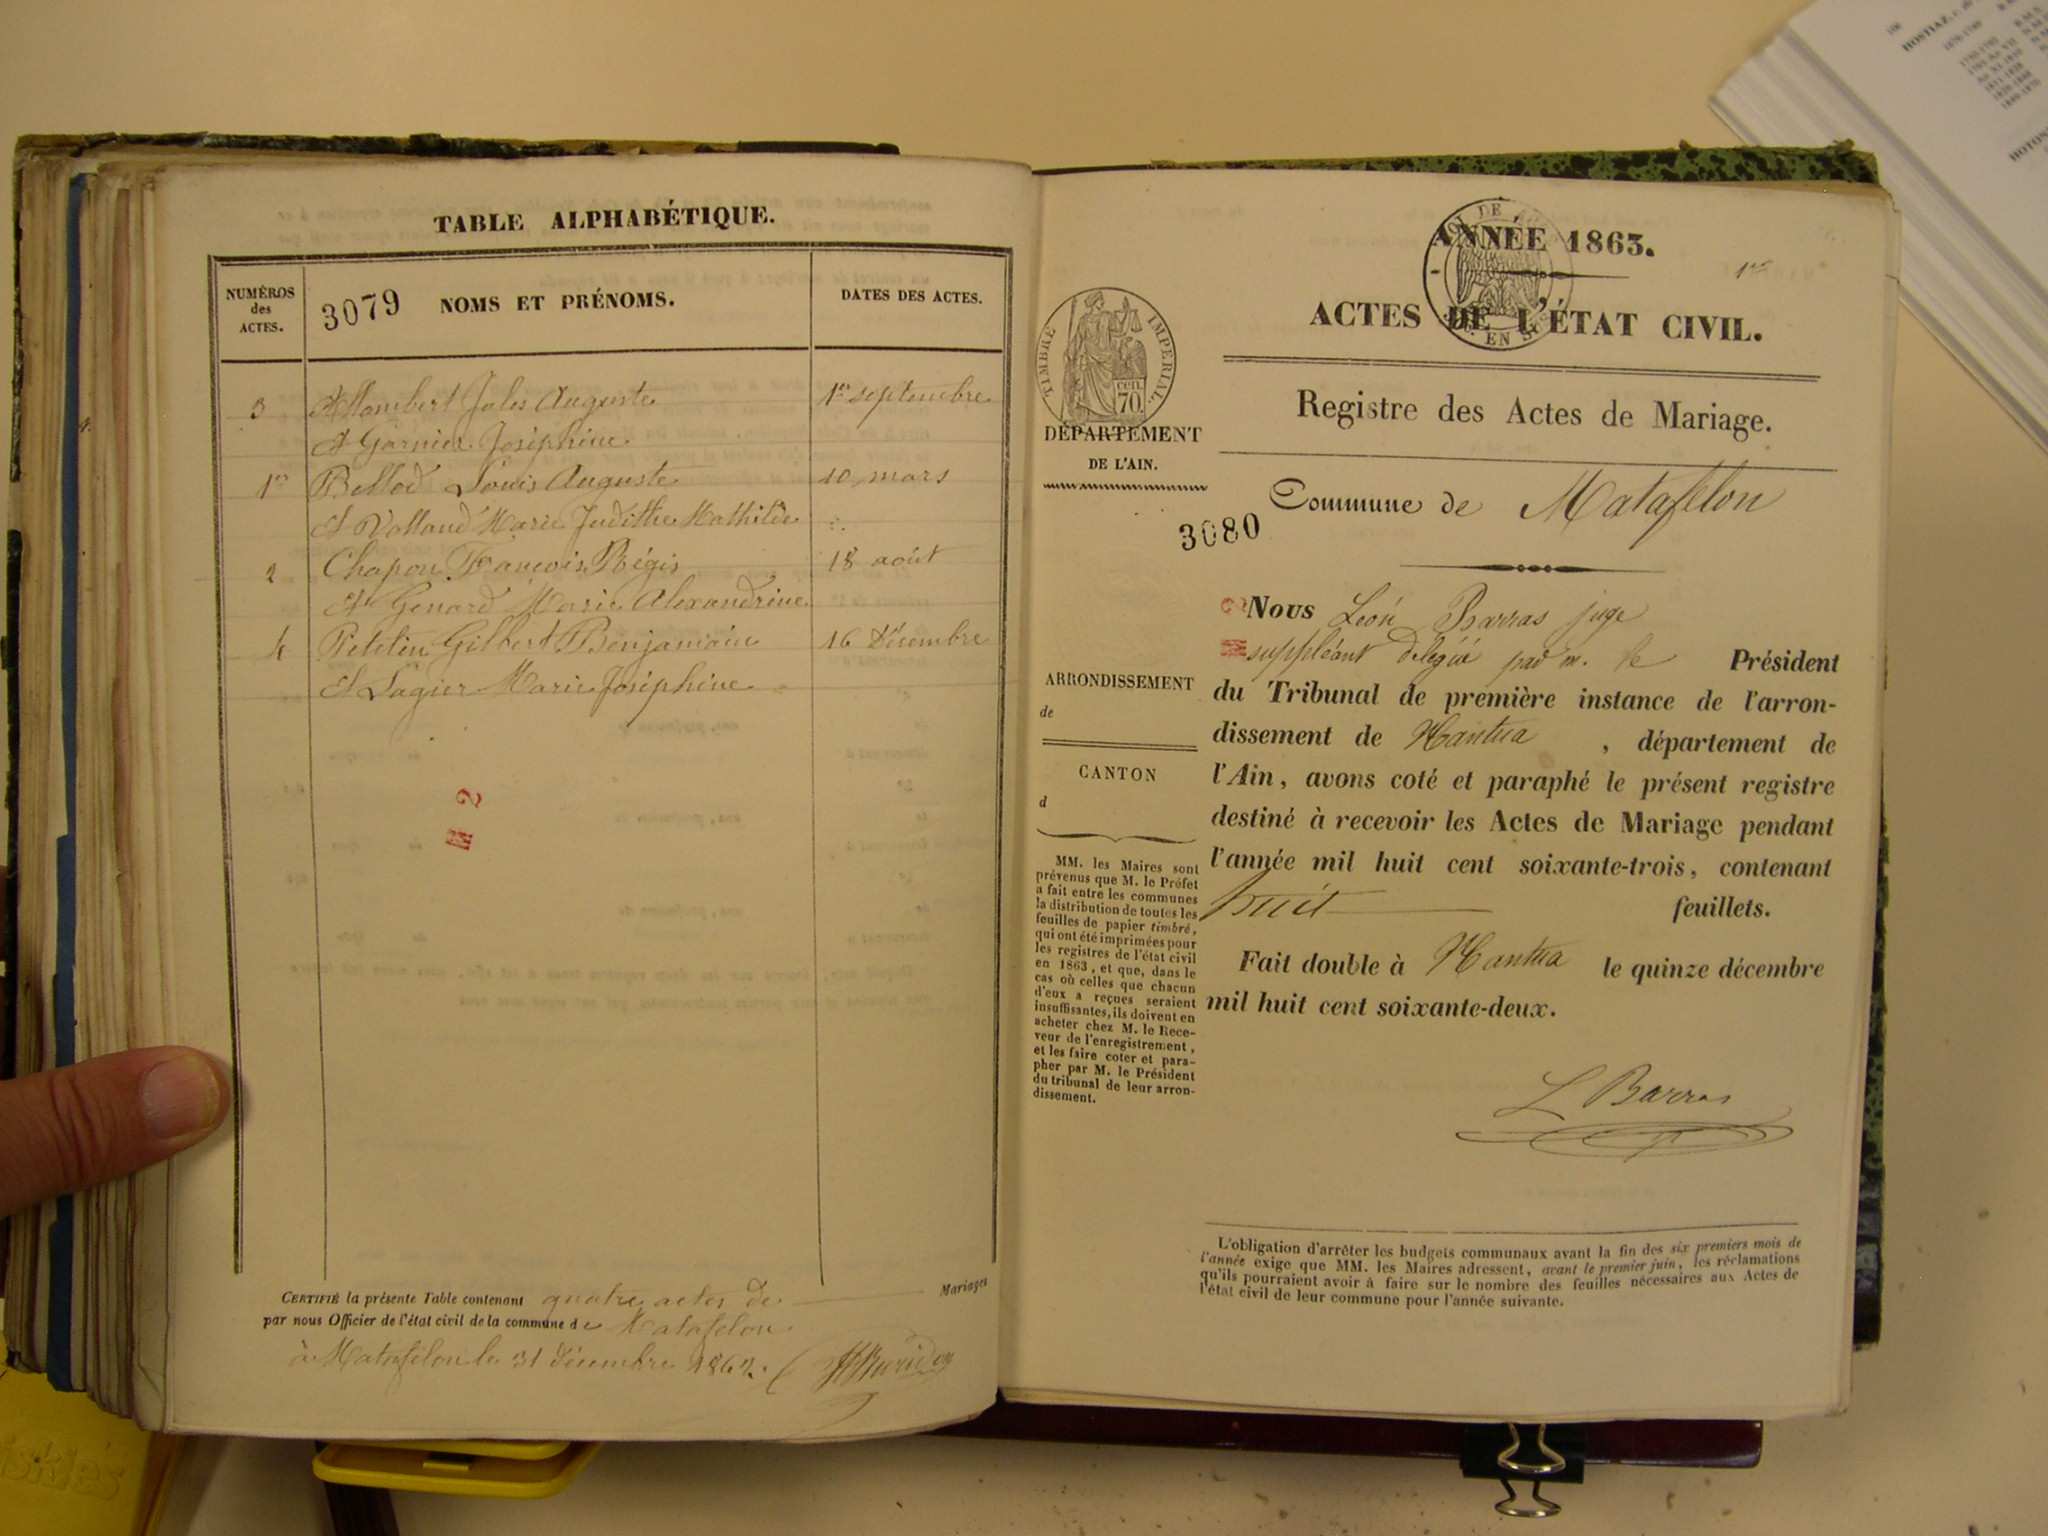 TABLE ALPHABÉTIQUE.
NUMÉROS
des
ACTES.
3079 NOMS ET PRÉNOMS.
DATES DES ACTES.
3 Allombert Jules Auguste 1er septembre
Et Garnier Joséphine
1er Bellod Louis Auguste 10 mars
Et Volland Marie Judithe Mathilde
2 Chapon François Régis 18 août
Et Genard Marie Alexandrine
4 Petitin Gilbert Benjamain 16 Décembre
Et Lagier Marie Joséphine
M 2
CERTIFIÉ la présente Table contenant quatre actes de Mariages
par nous Officier de l'état civil de la commune de Matafelon
à Matafelon le 31 décembre 1862.
ANNÉE 1863.
1er
ACTES DE L'ÉTAT CIVIL.
TIMBRE IMPÉRIAL
cen.
70.
DÉPARTEMENT
DE L'AIN.
Registre des Actes de Mariage.
Commune de Matafelon
3080
Nous Léon Barras juge
suppléant délégué par m. le Président
du Tribunal de première instance de l'arron-
dissement de Nantua, département de
l'Ain, avons coté et paraphé le présent registre
destiné à recevoir les Actes de Mariage pendant
l'année mil huit cent soixante-trois, contenant
huit feuillets.
Fait double à Nantua le quinze décembre
mil huit cent soixante-deux.
L Barras
ARRONDISSEMENT
de
CANTON
d
MM. les Maires sont
prévenus que M. le Préfet
a fait entre les communes
la distribution de toutes les
feuilles de papier timbré,
qui ont été imprimées pour
les registres de l'état civil
en 1863, et que, dans le
cas où celles que chacun
d'eux a reçues seraient
insuffisantes, ils doivent en
acheter chez M. le Rece-
veur de l'enregistrement,
et les faire coter et para-
pher par M. le Président
du tribunal de leur arron-
dissement.
L'obligation d'arrêter les budgets communaux avant la fin des six premiers mois de
l'année exige que MM. les Maires adressent, avant le premier juin, les réclamations
qu'ils pourraient avoir à faire sur le nombre des feuilles nécessaires aux Actes de
l'état civil de leur commune pour l'année suivante.